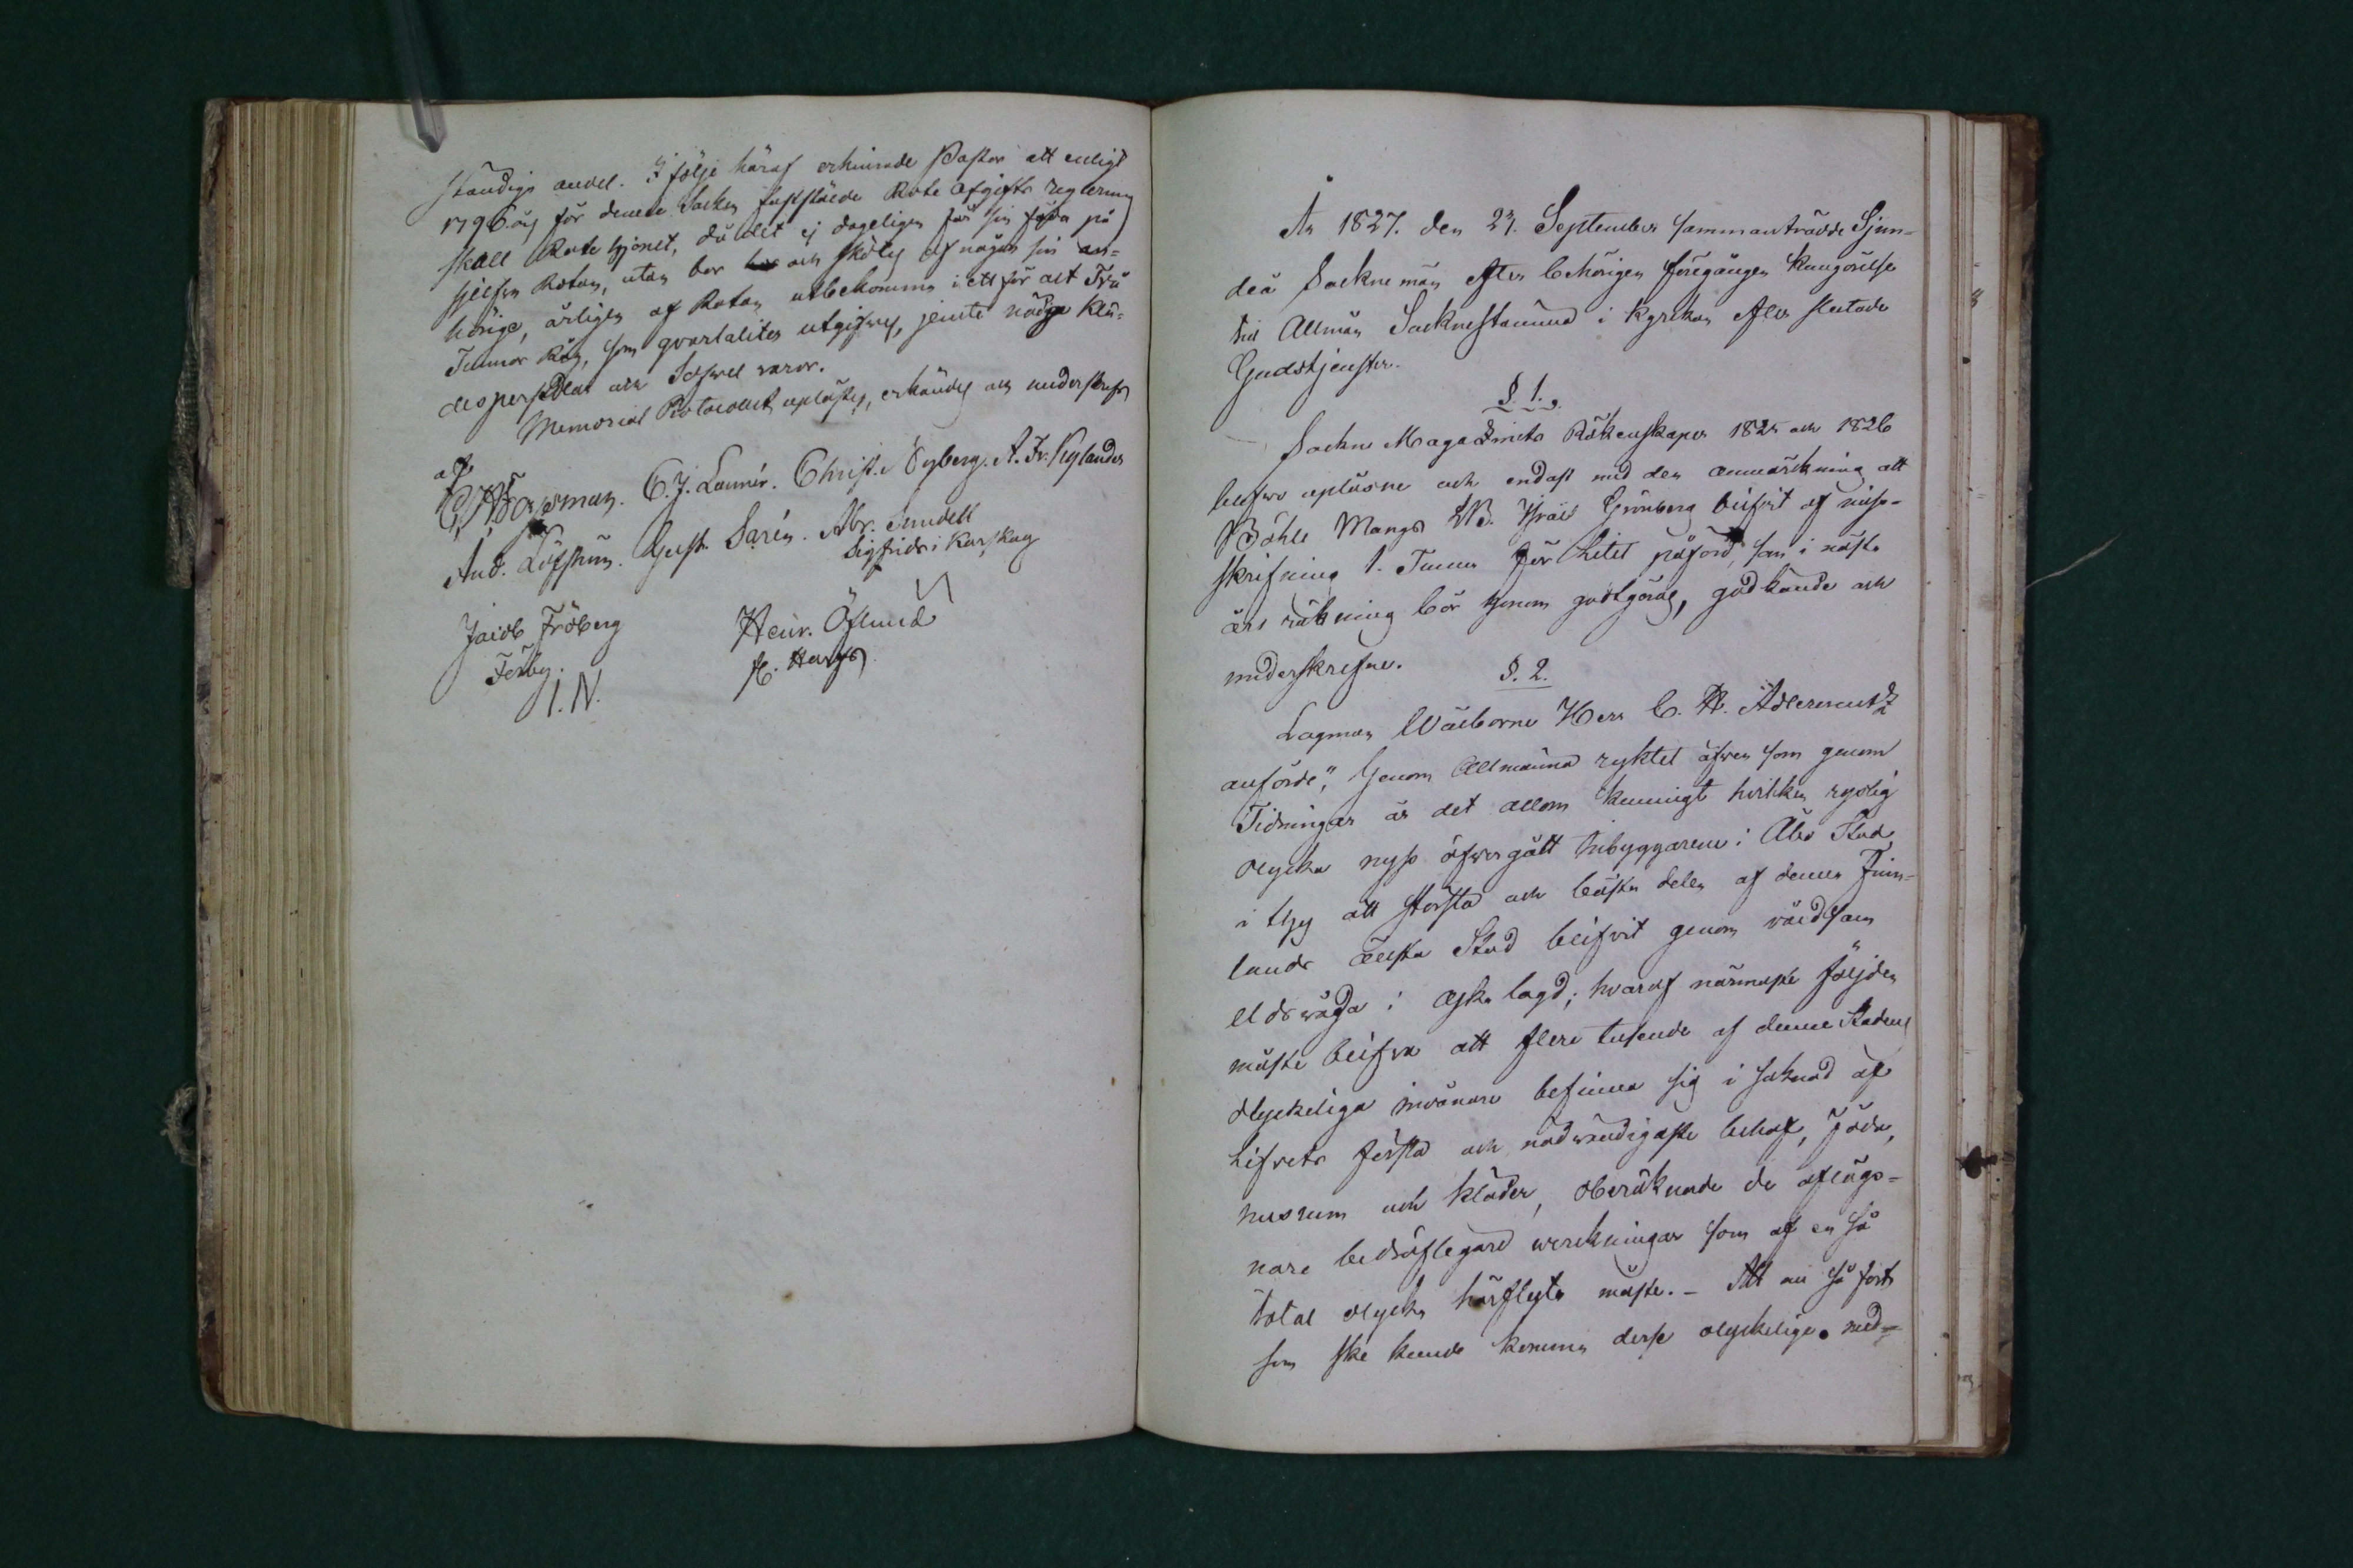 ständigt andel. I följe häraf erhinrade Pastor att enligt
1796. års för denna Socken fastställde Rote afgifts reglering
skall Rote hjonet, då det ej dageligen får sin föda på
sjelfva Rotan, utan bor och skötes af någon sin an-
hörige, årligen af Rotan utbekomma i ett för alt Två
Tunnor Råg, som qvartaliter utgifves, jemte nödige klä-
despersedlar och Sofvel varor.
Memorial Protocollet uplästes, erkändes och underskrefs
af
C. J. Lanér. Christ. Nyberg. A. Fr. Nylander
And. Löfström. Gust. Sarén. Abr. Sundell
Sigfrids i Karskog
Jacob Fröberg Henr. Öflund
Förby. H. Hargs
I. N.
År 1827. den 23. September sammanträdde Sjun-
deå Sockne män efter behörigen föregången Kungörelse
till Allmän Socknestämma i Kyrkan efter slutade
Gudstjensten.
§. 1.
Sockne Magazinets Räkenskaper 1825 och 1826
blefvo uplästne och endast med den anmärkning att
Böhle Mangs LB. Israel Grönberg blifvit af miss-
skrifning 1. Tunna för litet påförd, som i nästa
års räkning bör honom godtgöras, godkände och
underskrefne.
§. 2.
Lagman Wälborne Herr C. H. Adlercreutz
anförde, "Genom Allmänna ryktet äfven som genom
Tidningar är det allom kunnigt hvilken ryslig
olycka nyss öfvergått Inbyggarene i Åbo Stad,
i thy att största och bästa delen af denna Finn-
lands älsta Stad blifvit genom våldsam
eldsvåda i aska lagd; hvaraf närmaste följden
måste blifva att flere tusende af denne Stadens
olyckeliga invånare befinna sig i saknad af
Lifvets första och nödvändigaste behof, Föda,
husrum och kläder, oberäknade de aflägs-
nare bedröfligare verkningar som af en så
total olycka härflyta måste. – Att nu så fort
som ske kunde komma desse olyckelige med-